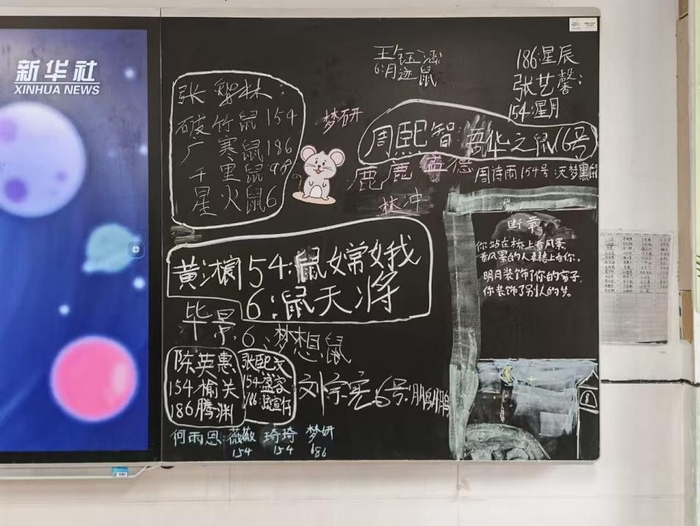 新华社
XINHUA NEWS
王钰涵
6:月迹鼠
186:星辰
张艺馨:
154:星月
张黎林
破竹鼠 154
广寒鼠 186
千里鼠 98
星火鼠 6
梦研
周熙智:吾华之鼠 6号
鹿鹿盛德
周诗雨 154号
林冲
断章
你站在桥上看风景
看风景的人在楼上看你。
明月装饰了你的窗子
你装饰了别人的梦。
黄 54:鼠嫦娥
6:鼠天将
毕景
6:梦想鼠
陈英惠
154榆关
186腾渊
张熙
154
186
刘宗宪 6号:鹏鹏
何雨恩:薇薇 琦琦 梦妍
154 154 186